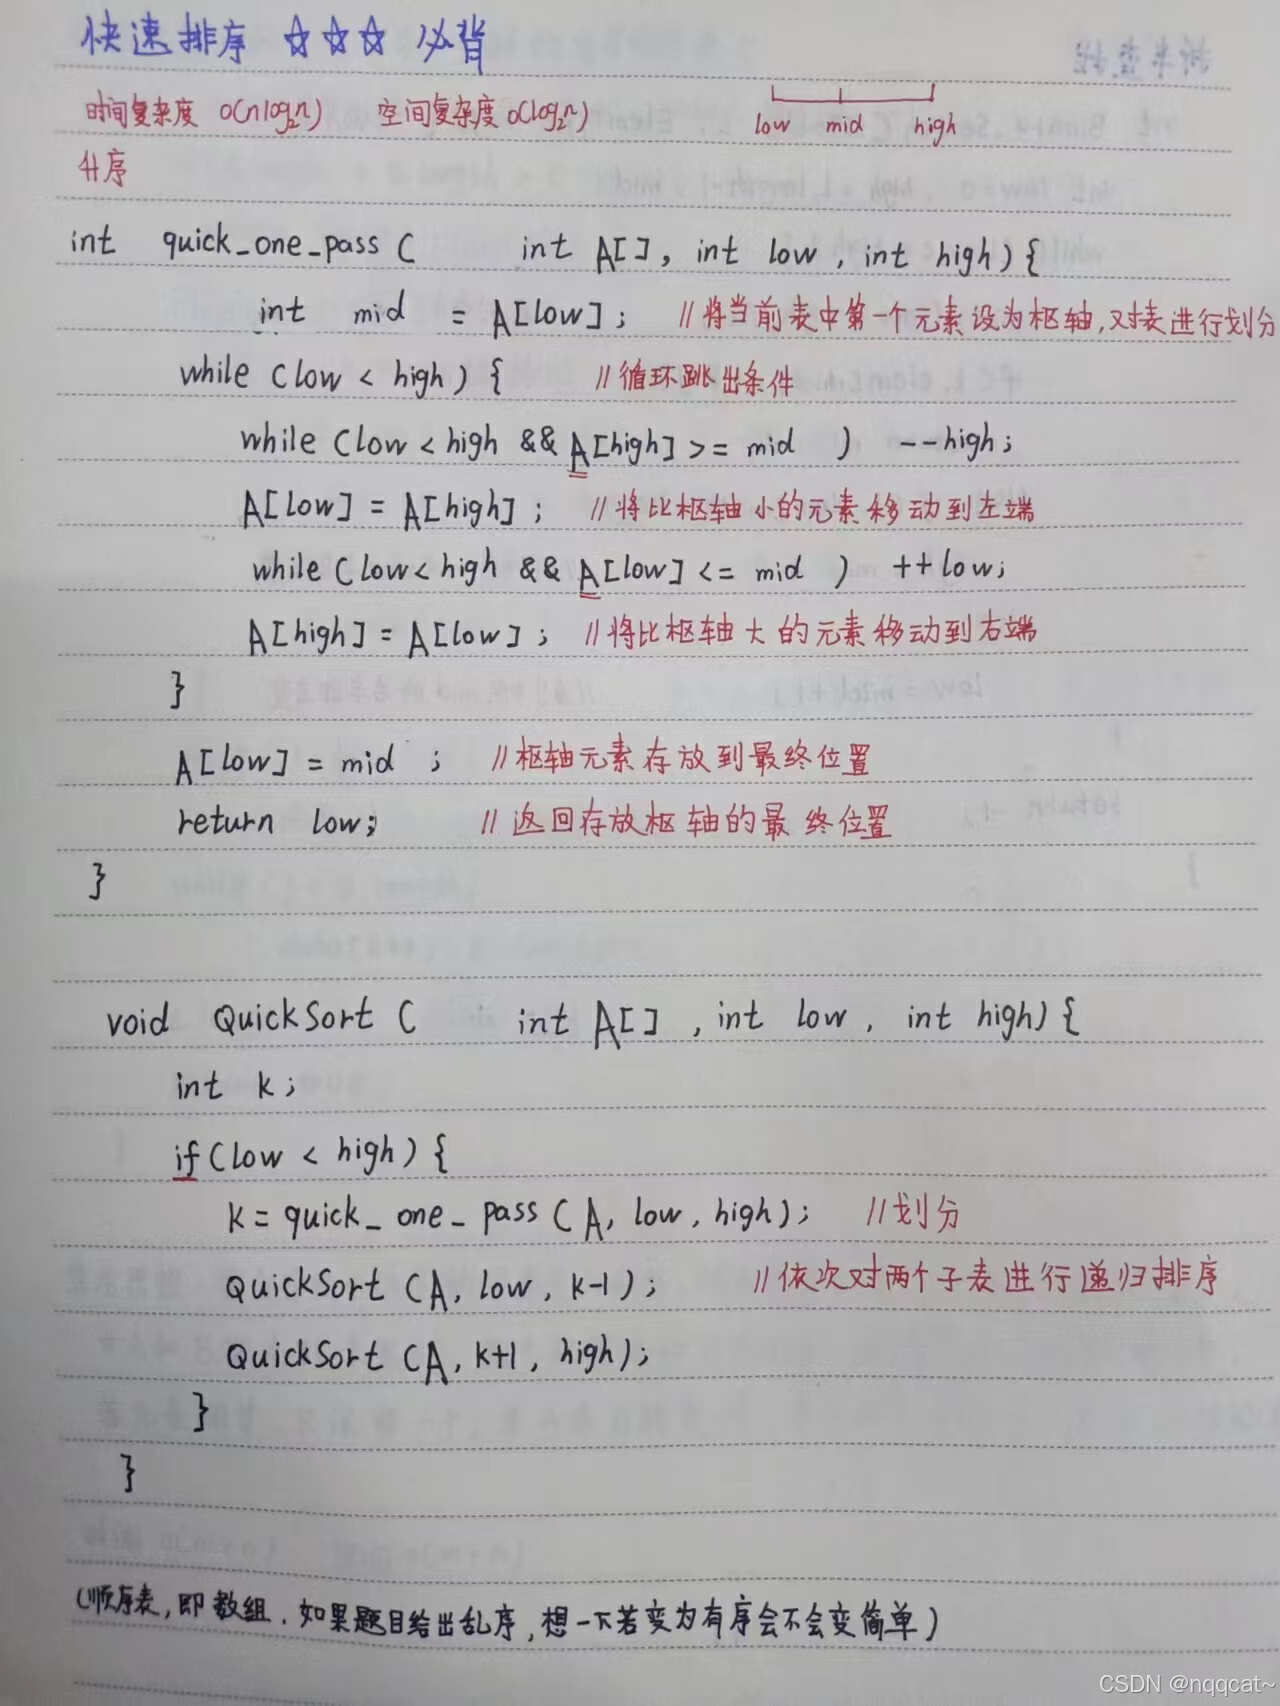 快速排序 ☆☆☆ 必背
时间复杂度 O(nlog₂n) 空间复杂度 O(log₂n) low mid high
升序
int quick_one_pass( int A[], int low, int high){
int mid = A[low]; //将当前表中第一个元素设为枢轴,对表进行划分
while (low < high){ //循环跳出条件
while (low < high && A[high] >= mid ) --high;
A[low] = A[high]; //将比枢轴小的元素移动到左端
while (low < high && A[low] <= mid ) ++low;
A[high] = A[low]; //将比枢轴大的元素移动到右端
}
A[low] = mid ; //枢轴元素存放到最终位置
return low; //返回存放枢轴的最终位置
}
void QuickSort( int A[], int low, int high){
int k;
if(low < high){
k = quick_one_pass(A, low, high); //划分
QuickSort(A, low, k-1); //依次对两个子表进行递归排序
QuickSort(A, k+1, high);
}
}
(顺序表,即数组.如果题目给出乱序,想一下若变为有序会不会变简单)
CSDN @nqqcat~